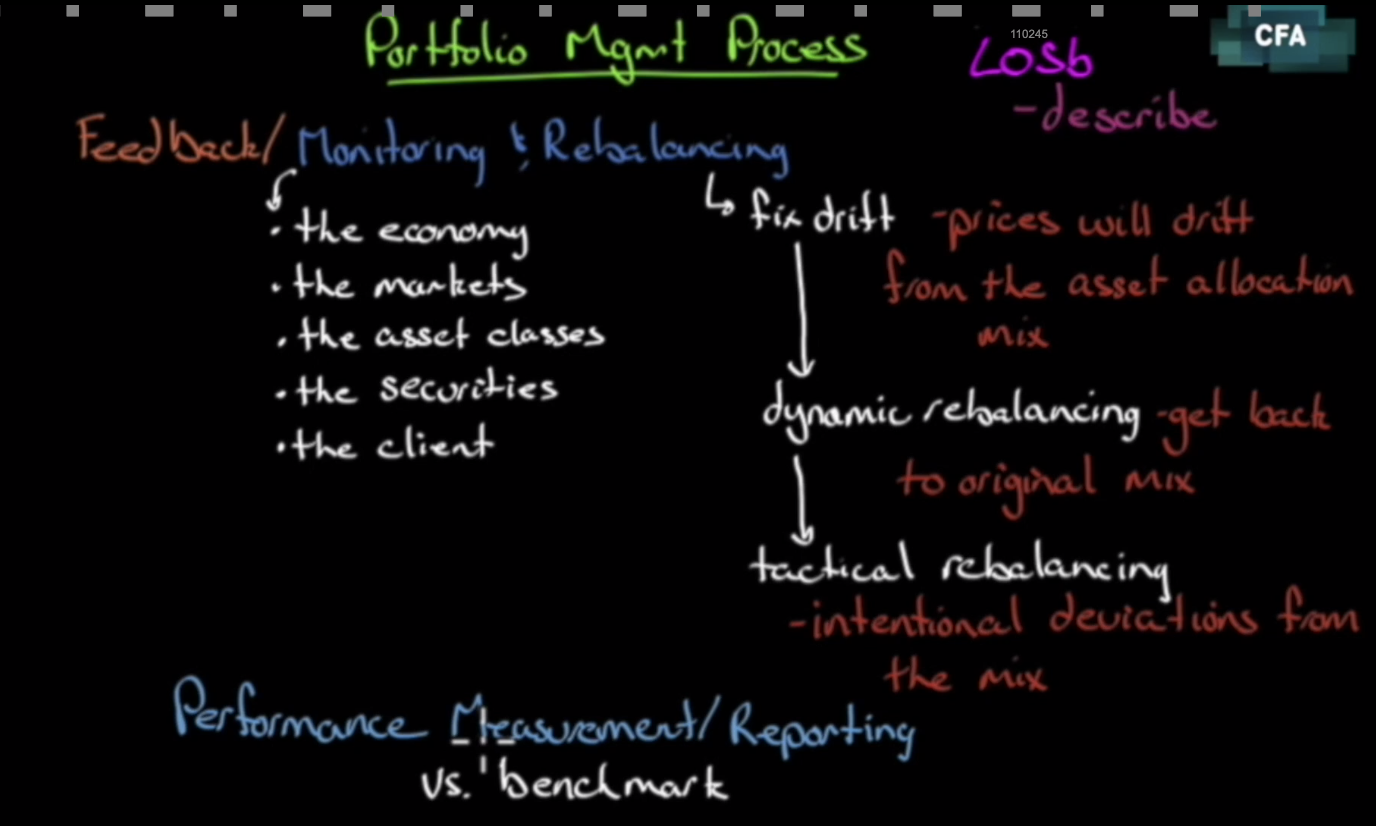 Portfolio Mgmt Process
110245
LOSb
CFA
-describe
Feedback/Monitoring & Rebalancing
• the economy
• the markets
• the asset classes
• the securities
• the client
↳ fix drift -prices will drift
from the asset allocation
mix
dynamic rebalancing -get back
to original mix
tactical rebalancing
-intentional deviations from
the mix
Performance Measurement/Reporting
vs. benchmark